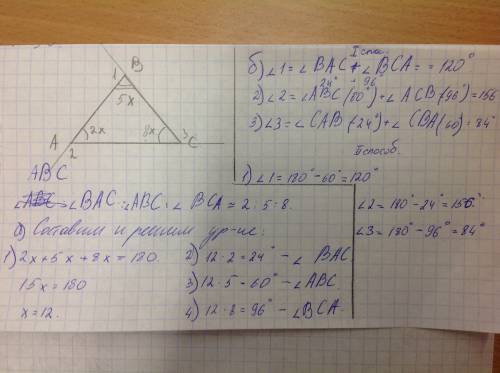 B
1
5x
A
2x
8x
3
C
2
ABC
∠BAC:∠ABC:∠BCA=2:5:8.
а) Составим и решим ур-ие:
1) 2x+5x+8x=180.
15x=180
x=12.
2) 12·2=24° - ∠BAC.
3) 12·5=60° - ∠ABC.
4) 12·8=96° - ∠BCA.
I спо.
б) ∠1=∠BAC+∠BCA= =120°
24° + 96
2) ∠2=∠ABC(60°)+∠ACB(96°)=156
3) ∠3=∠CAB(24°)+∠CBA(60)=84°
II способ.
1) ∠1=180°-60°=120°
∠2=180°-24°=156°
∠3=180°-96°=84°